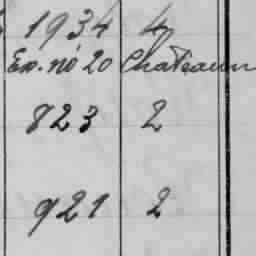 1934 4
Ex. nó 20 Chateaun
823 2
921 2